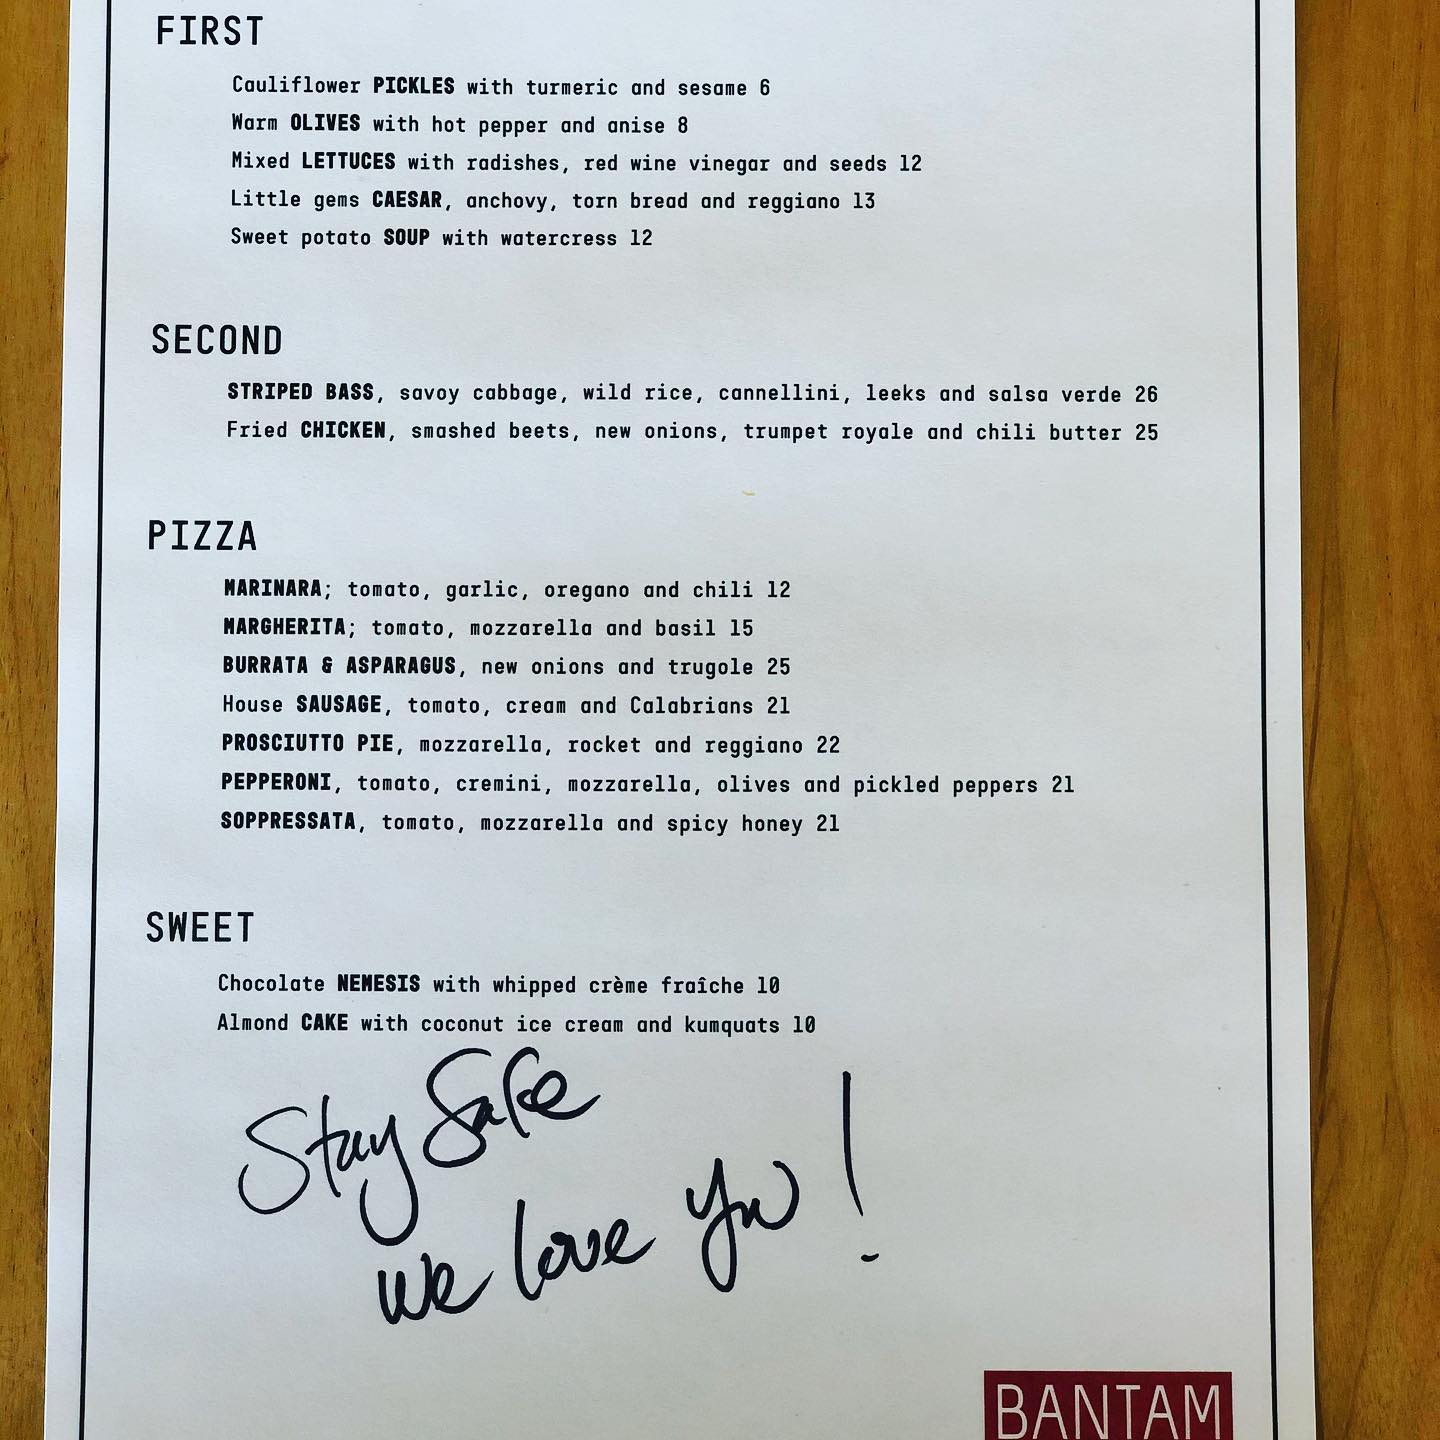 FIRST
Cauliflower PICKLES with turmeric and sesame 6
Warm OLIVES with hot pepper and anise 8
Mixed LETTUCES with radishes, red wine vinegar and seeds 12
Little gems CAESAR, anchovy, torn bread and reggiano 13
Sweet potato SOUP with watercress 12
SECOND
STRIPED BASS, savoy cabbage, wild rice, cannellini, leeks and salsa verde 26
Fried CHICKEN, smashed beets, new onions, trumpet royale and chili butter 25
PIZZA
MARINARA; tomato, garlic, oregano and chili 12
MARGHERITA; tomato, mozzarella and basil 15
BURRATA & ASPARAGUS, new onions and trugole 25
House SAUSAGE, tomato, cream and Calabrians 21
PROSCIUTTO PIE, mozzarella, rocket and reggiano 22
PEPPERONI, tomato, cremini, mozzarella, olives and pickled peppers 21
SOPPRESSATA, tomato, mozzarella and spicy honey 21
SWEET
Chocolate NEMESIS with whipped crème fraîche 10
Almond CAKE with coconut ice cream and kumquats 10
Stay Safe
we love you!
BANTAM